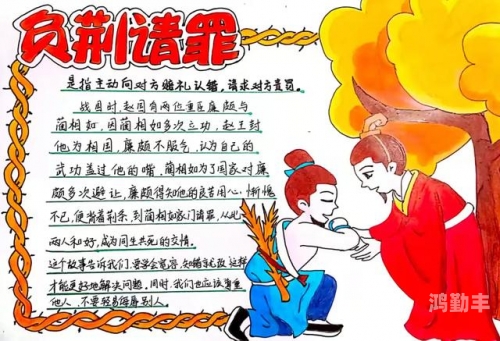 负荆请罪
是指主动向对方赔礼认错,请求对方责罚。
战国时,赵国有两位重臣廉颇与
蔺相如,因蔺相如多次立功,赵王封
他为相国,廉颇不服气,认为自己的
武功盖过他的嘴,蔺相如为了国家对廉
颇多次避让,廉颇得知他的良苦用心,惭愧
不已,便背着荆条,到蔺相如家门请罪,从此
两人和好,成为同生共死的交情。
这个故事告诉我们,要学会宽容,知错就改,这样
才能更好地解决问题,同时,我们也应该尊重
他人,不要轻易得罪别人。
鸿勤丰